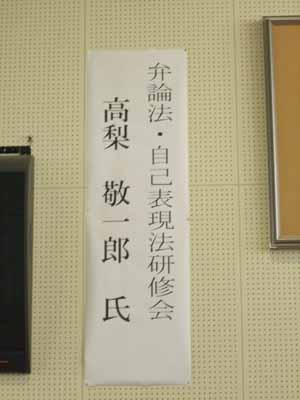 弁論法・自己表現法研修会
高梨 敬一郎 氏